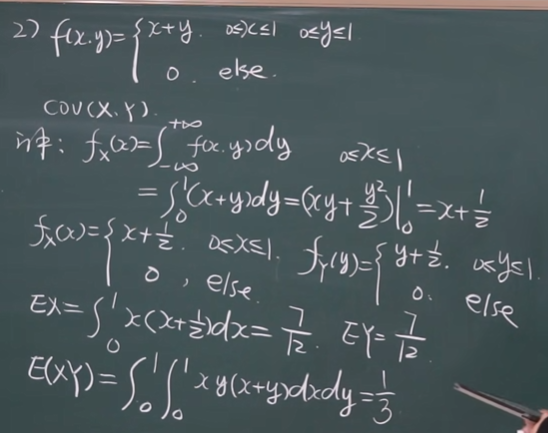 2) f(x.y)={x+y. 0≤x≤1 0≤y≤1
0. else.
COV(X,Y).
fₓ(x)=∫_{-∞}^{+∞} f(x,y)dy 0≤x≤1
=∫₀¹(x+y)dy=(xy+y²/2)|₀¹=x+1/2
fₓ(x)={x+1/2. 0≤x≤1. f_Y(y)={y+1/2. 0≤y≤1.
0, else. 0. else
EX=∫₀¹x(x+1/2)dx=7/12 EY=7/12.
E(XY)=∫₀¹∫₀¹xy(x+y)dxdy=1/3